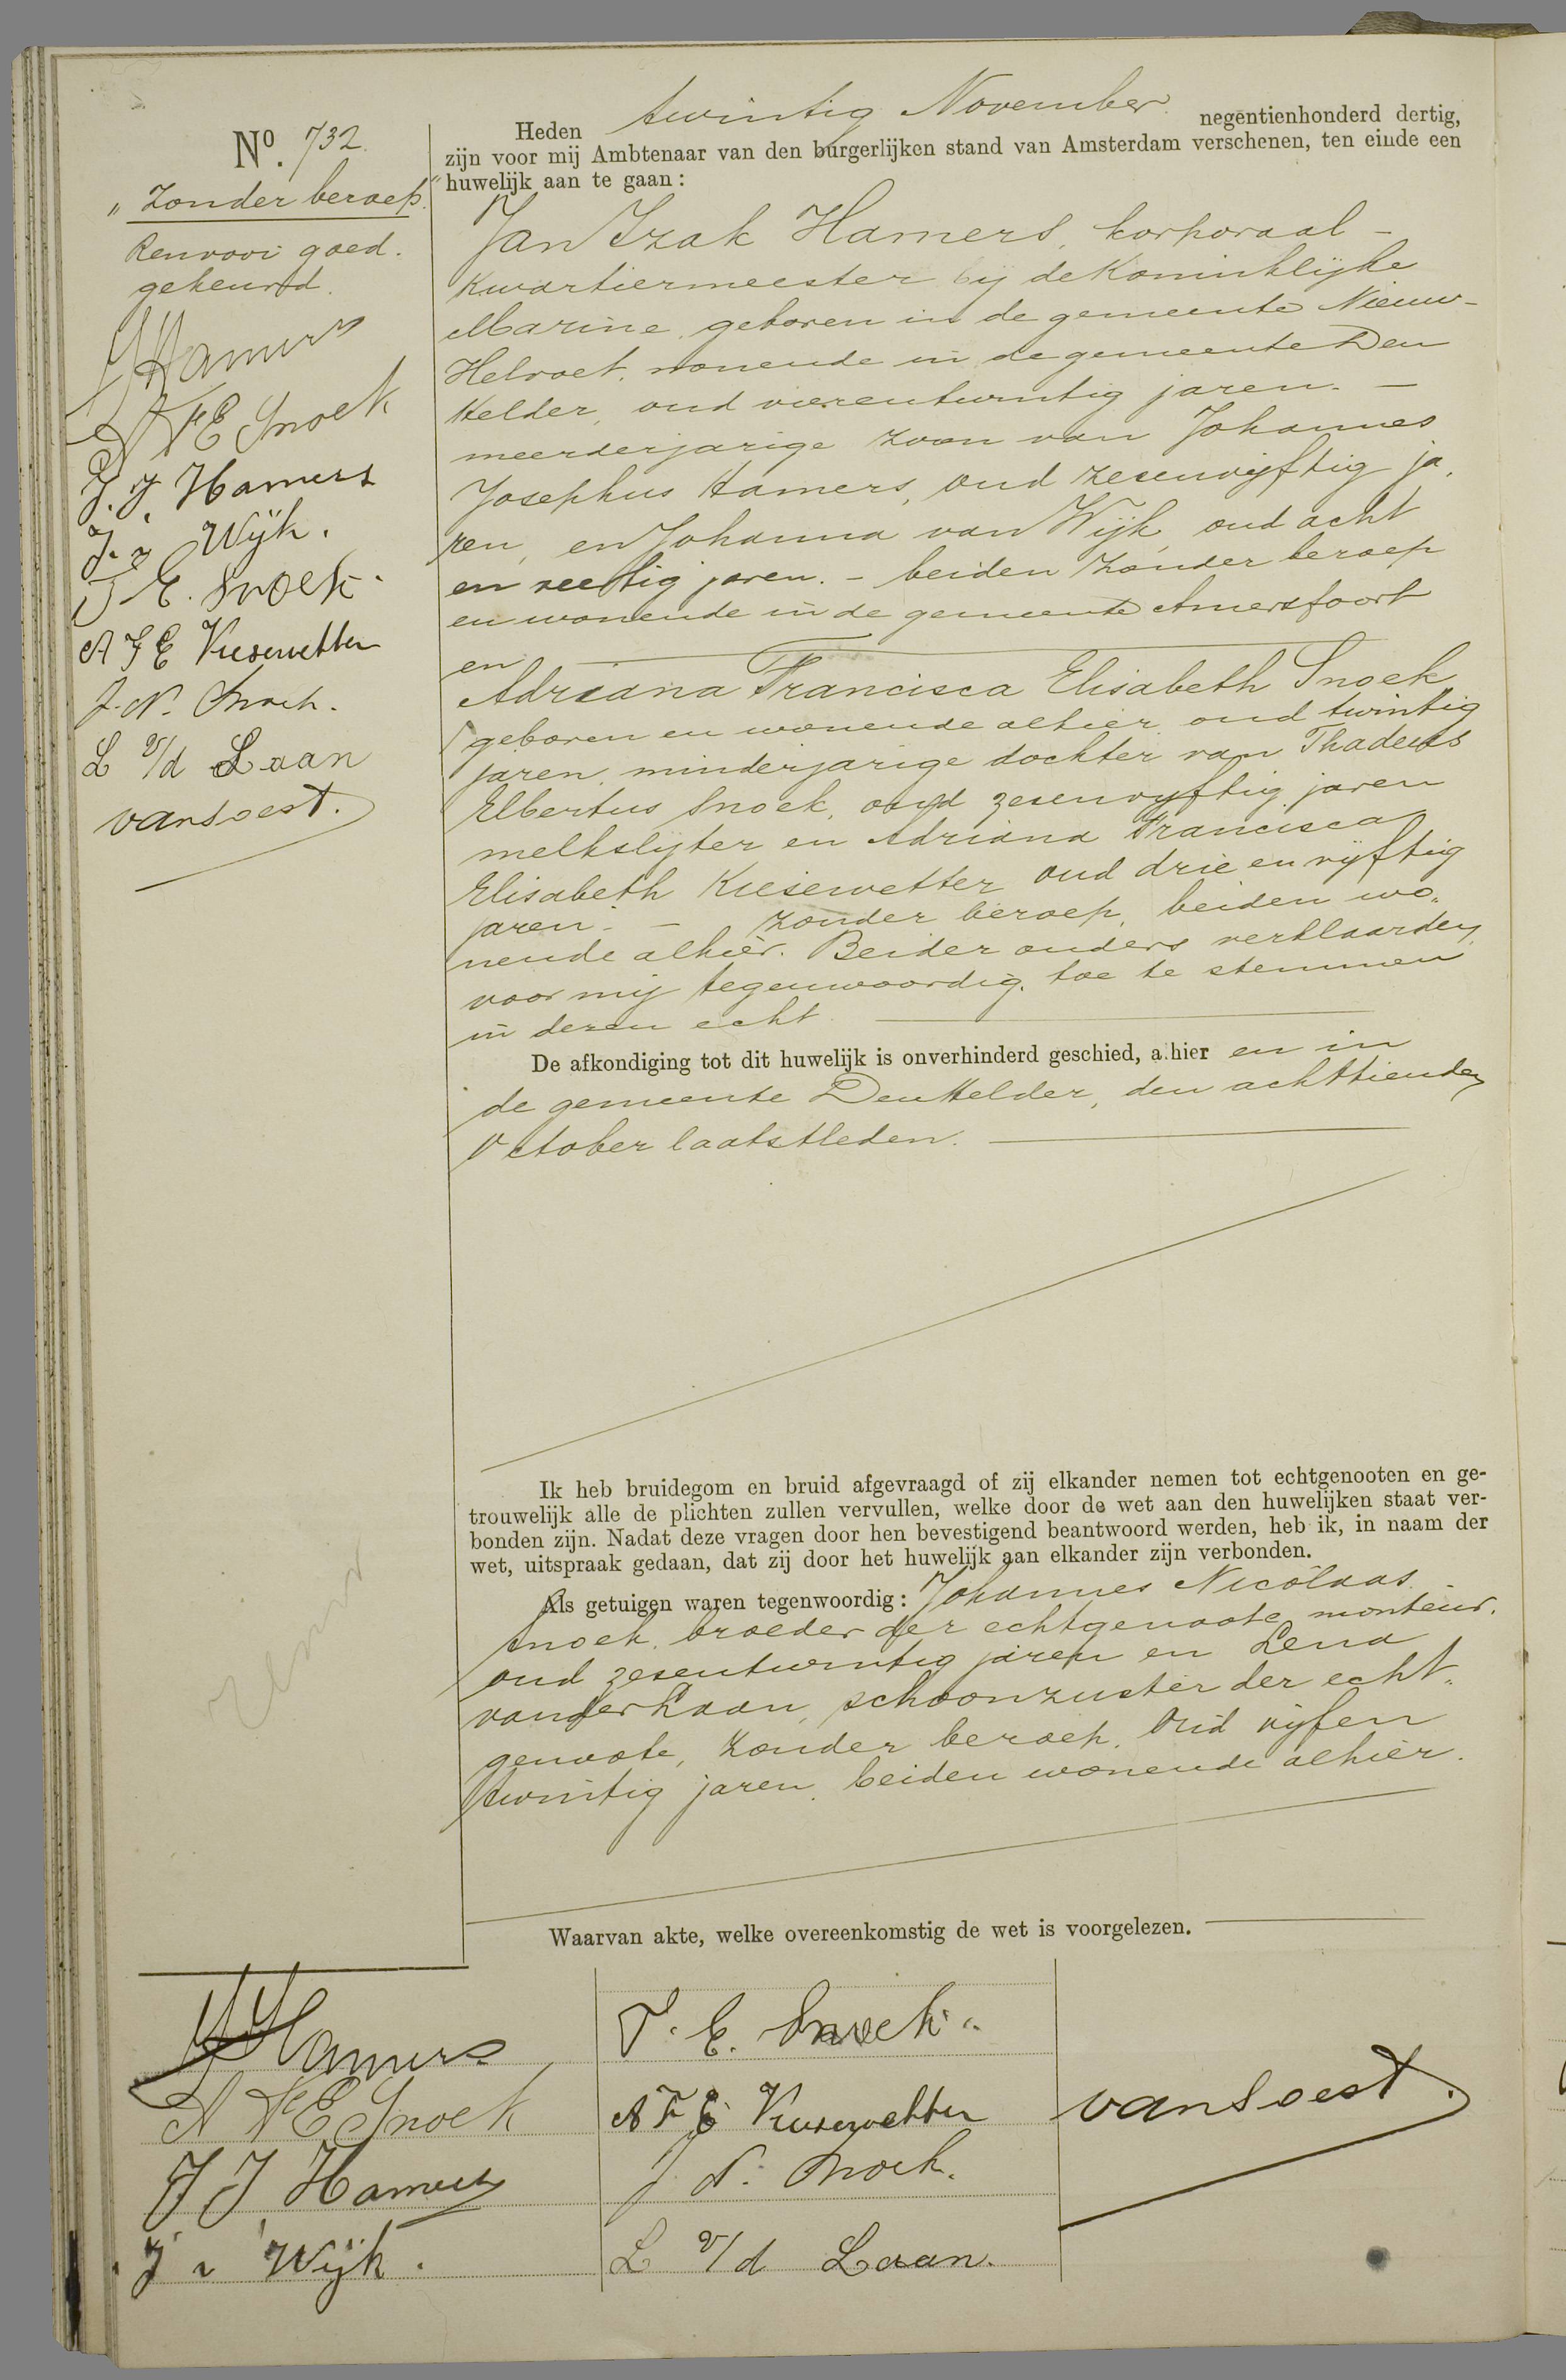 No. 732.
"Zonder beroep."
Renvooi goed-
gekeurd.
JJHamers
AFE Snoek
J. J. Hamers
J. v Wijk.
T. E. Snoek.
A F E Kiesewetter
J. N. Snoek.
L v/d Laan
van Soest.
Heden twintig November negentienhonderd dertig,
zijn voor mij Ambtenaar van den burgerlijken stand van Amsterdam verschenen, ten einde een
huwelijk aan te gaan:
Jan Izak Hamers, korporaal-
kwartiermeester bij de Koninklijke
Marine, geboren in de gemeente Nieuw-
Helvoet, wonende in de gemeente Den
Helder, oud vierentwintig jaren. —
meerderjarige zoon van Johannes
Josephus Hamers, oud zesenvijftig ja-
ren, en Johanna van Wijk, oud acht
en veertig jaren. - beiden zonder beroep
en wonende in de gemeente Amersfoort
en
Adriana Francisca Elisabeth Snoek
geboren en wonende alhier, oud twintig
jaren, minderjarige dochter van Thadeus
Elbertus Snoek, oud zesenvijftig jaren
melkslijter en Adriana Francisca
Elisabeth Kiesewetter oud drie en vijftig
jaren. — zonder beroep, beiden wo-
nende alhier. Beider ouders verklaarden
voor mij tegenwoordig, toe te stemmen
in dezen echt.
De afkondiging tot dit huwelijk is onverhinderd geschied, alhier en in
de gemeente Den Helder, den achttienden
October laatstleden.
Ik heb bruidegom en bruid afgevraagd of zij elkander nemen tot echtgenooten en ge-
trouwelijk alle de plichten zullen vervullen, welke door de wet aan den huwelijken staat ver-
bonden zijn. Nadat deze vragen door hen bevestigend beantwoord werden, heb ik, in naam der
wet, uitspraak gedaan, dat zij door het huwelijk aan elkander zijn verbonden.
Als getuigen waren tegenwoordig: Johannes Nicolaas
Snoek, broeder der echtgenoote, monteur,
oud zesentwintig jaren en Lena
van der Laan, schoonzuster der echt-
genoote, zonder beroep, oud vijfen
twintig jaren, beiden wonende alhier.
Waarvan akte, welke overeenkomstig de wet is voorgelezen.
JJHamers
A F E Snoek
J J Hamers
J v Wijk.
T. E. Snoek.
A F E Kiesewetter
J N. Snoek.
L v/d Laan.
van Soest.